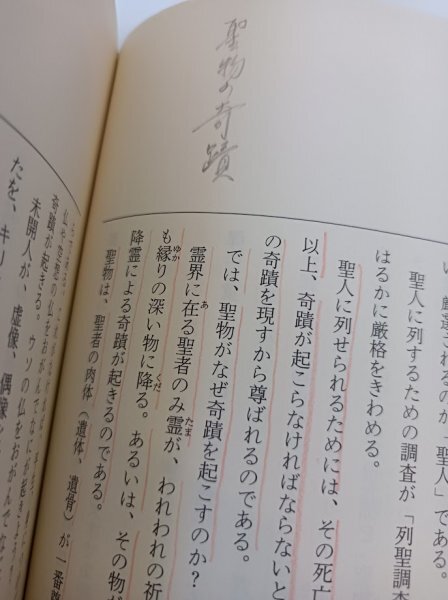 聖物の奇蹟
厳選されるのが「聖人」である。
聖人に列するための調査が「列聖調査
はるかに厳格をきわめる。
聖人に列せられるためには、その死亡
以上、奇蹟が起こらなければならないと
の奇蹟を現すから尊ばれるのである。
では、聖物がなぜ奇蹟を起こすのか？
霊界に在る聖者のみ霊が、われわれの祈
も縁りの深い物に降る。あるいは、その物が
降霊による奇蹟が起きるのである。
聖物は、聖者の肉体（遺体、遺骨）が一番
奇蹟が起きる。ウソの仏をおがんで
未開人が、虚像、偶像
たを、キリ